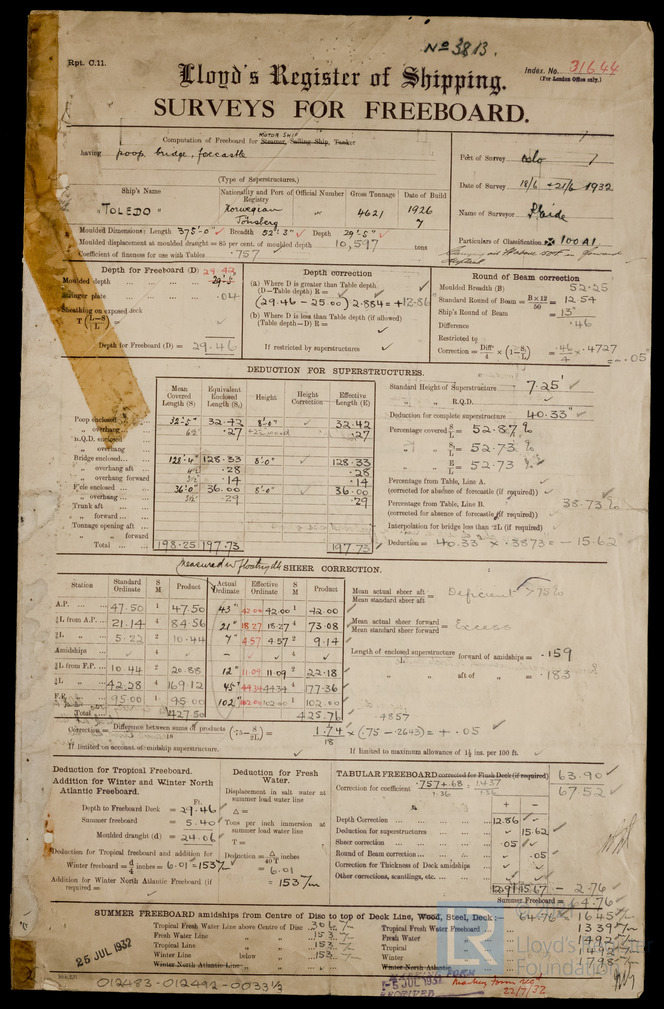 Nº 3813.
Rpt. C.11.
Index. No. 31644
(For London Office only.)
Lloyd's Register of Shipping.
SURVEYS FOR FREEBOARD.
MOTOR SHIP
Computation of Freeboard for Steamer, Sailing Ship, Tanker
having poop, bridge, forecastle
(Type of Superstructures.)
Port of Survey Oslo
Date of Survey 18/6 + 21/6 1932
Name of Surveyor
Particulars of Classification 100 A1
Ship's Name
Nationality and Port of Registry
Official Number
Gross Tonnage
Date of Build
"TOLEDO"
Norwegian
Tönsberg
4621
1926
7
Moulded Dimensions: Length 375'-0" Breadth 52'-3" Depth 29'-5"
Moulded displacement at moulded draught = 85 per cent. of moulded depth 10,597 tons
Coefficient of fineness for use with Tables .757
Depth for Freeboard (D)
29.42
Moulded depth 29'-5
Stringer plate .04
Sheathing on exposed deck
T (L-S/L) =
Depth for Freeboard (D) = 29.46
Depth correction
(a) Where D is greater than Table depth
(D—Table depth) R =
(29.46 - 25.00) 2.884 = +12.86
(b) Where D is less than Table depth (if allowed)
(Table depth—D) R =
If restricted by superstructures
Round of Beam correction
Moulded Breadth (B) 52.25
Standard Round of Beam = B×12/50 = 12.54
Ship's Round of Beam = 13"
Difference .46
Restricted to
Correction = Diff/4 × (1-S/L) = .46/4 × .4727 = -.05
DEDUCTION FOR SUPERSTRUCTURES.
Mean Covered Length (S)
Equivalent Enclosed Length (S₁)
Height
Height Correction
Effective Length (E)
Poop enclosed 32'-5" 32.42 8'-0" 32.42
„ overhang .27 .27
R.Q.D. enclosed
„ overhang
Bridge enclosed 128'-4" 128.33 8'-0" 128.33
„ overhang aft .28 .28
„ overhang forward .14 .14
F'cle enclosed 36'-0" 36.00 8'-0" 36.00
„ overhang .29 .29
Trunk aft
„ forward
Tonnage opening aft
„ „ forward
Total 198.25 197.73 197.73
Standard Height of Superstructure 7.25'
„ „ R.Q.D.
Deduction for complete superstructure 40.33"
Percentage covered S/L = 52.87%
„ „ S₁/L = 52.73 %
„ „ E/L = 52.73 %
Percentage from Table, Line A.
(corrected for absence of forecastle (if required))
Percentage from Table, Line B. 38.73%
(corrected for absence of forecastle (if required))
Interpolation for bridge less than ·2L (if required)
Deduction = 40.33 × .3873 = - 15.62"
Measured w. floating dk
SHEER CORRECTION.
Station
Standard Ordinate
S M
Product
Actual Ordinate
Effective Ordinate
S M
Product
A.P. 47.50 1 47.50 43" 42.00 42.00 1 42.00
⅙L from A.P. 21.14 4 84.56 21" 18.27 18.27 4 73.08
⅓L „ 5.22 2 10.44 7" 4.57 4.57 2 9.14
Amidships 4 4
⅓L from F.P. 10.44 2 20.88 12" 11.09 11.09 2 22.18
⅙L „ 42.28 4 169.12 45" 44.34 44.34 4 177.36
F.P. 95.00 1 95.00 102" 102.00 102.00 1 102.00
Total 427.50 425.76
Mean actual sheer aft / Mean standard sheer aft = Deficient >75%
Mean actual sheer forward / Mean standard sheer forward = Excess
Length of enclosed superstructure forward of amidships = .159
„ „ aft of „ = .183
Correction = Difference between sums of products / 18 (·75 - S/2L) = 1.74/18 × (.75 - .2643) = + .05
.4857
If limited on account of amidship superstructure.
If limited to maximum allowance of 1½ ins. per 100 ft.
Deduction for Tropical Freeboard.
Addition for Winter and Winter North Atlantic Freeboard.
Ft.
Depth to Freeboard Deck = 29.46
Summer freeboard = 5.40
Moulded draught (d) = 24.06
Deduction for Tropical freeboard and addition for
Winter freeboard = d/4 inches = 6.01 = 153 m/m
Addition for Winter North Atlantic Freeboard (if required) =
Deduction for Fresh Water.
Displacement in salt water at summer load water line
Δ =
Tons per inch immersion at summer load water line
T =
Deduction = Δ/40T inches
= 6.01
= 153 m/m
TABULAR FREEBOARD corrected for Flush Deck (if required) 63.90
Correction for coefficient .757+.68/1.36 = 1.437/1.36 67.52
+ -
Depth Correction 12.86
Deduction for superstructures 15.62
Sheer correction .05
Round of Beam correction .05
Correction for Thickness of Deck amidships
Other corrections, scantlings, etc.
12.91 15.67 - 2.76
Summer Freeboard = 64.76
SUMMER FREEBOARD amidships from Centre of Disc to top of Deck Line, Wood, Steel, Deck:— 64.76 1645 m/m
Tropical Fresh Water Line above Centre of Disc 306 m/m
Fresh Water Line „ 153
Tropical Line „ 153
Winter Line below „ 153
Winter North Atlantic Line „
Tropical Fresh Water Freeboard 1339
Fresh Water „ 1492
Tropical „ 1492
Winter „ 1798
Winter North Atlantic „
25 JUL 1932
012483-012492-0033½
-5 JUL 1932
22/7/32
LR
Lloyd's Register
Foundation